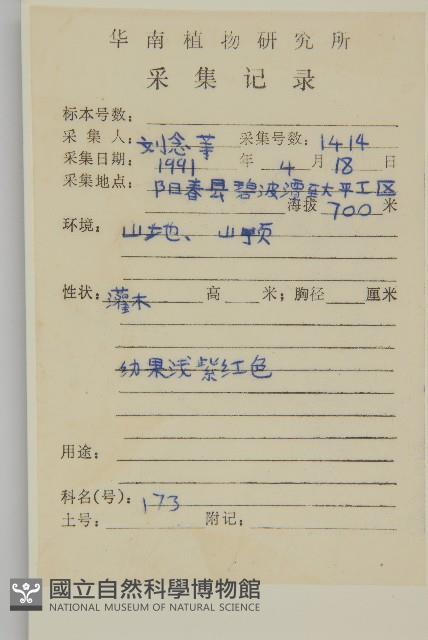 华南植物研究所
采集记录
标本号数：
采集人：刘念等 采集号数：1414
采集日期：1991年4月18日
采集地点：阳春县碧波潭至太平工区
海拔700米
环境：山地、山顶
性状：灌木 高 米；胸径 厘米
幼果浅紫红色
用途：
科名(号)：173
土号： 附记：
國立自然科學博物館
NATIONAL MUSEUM OF NATURAL SCIENCE